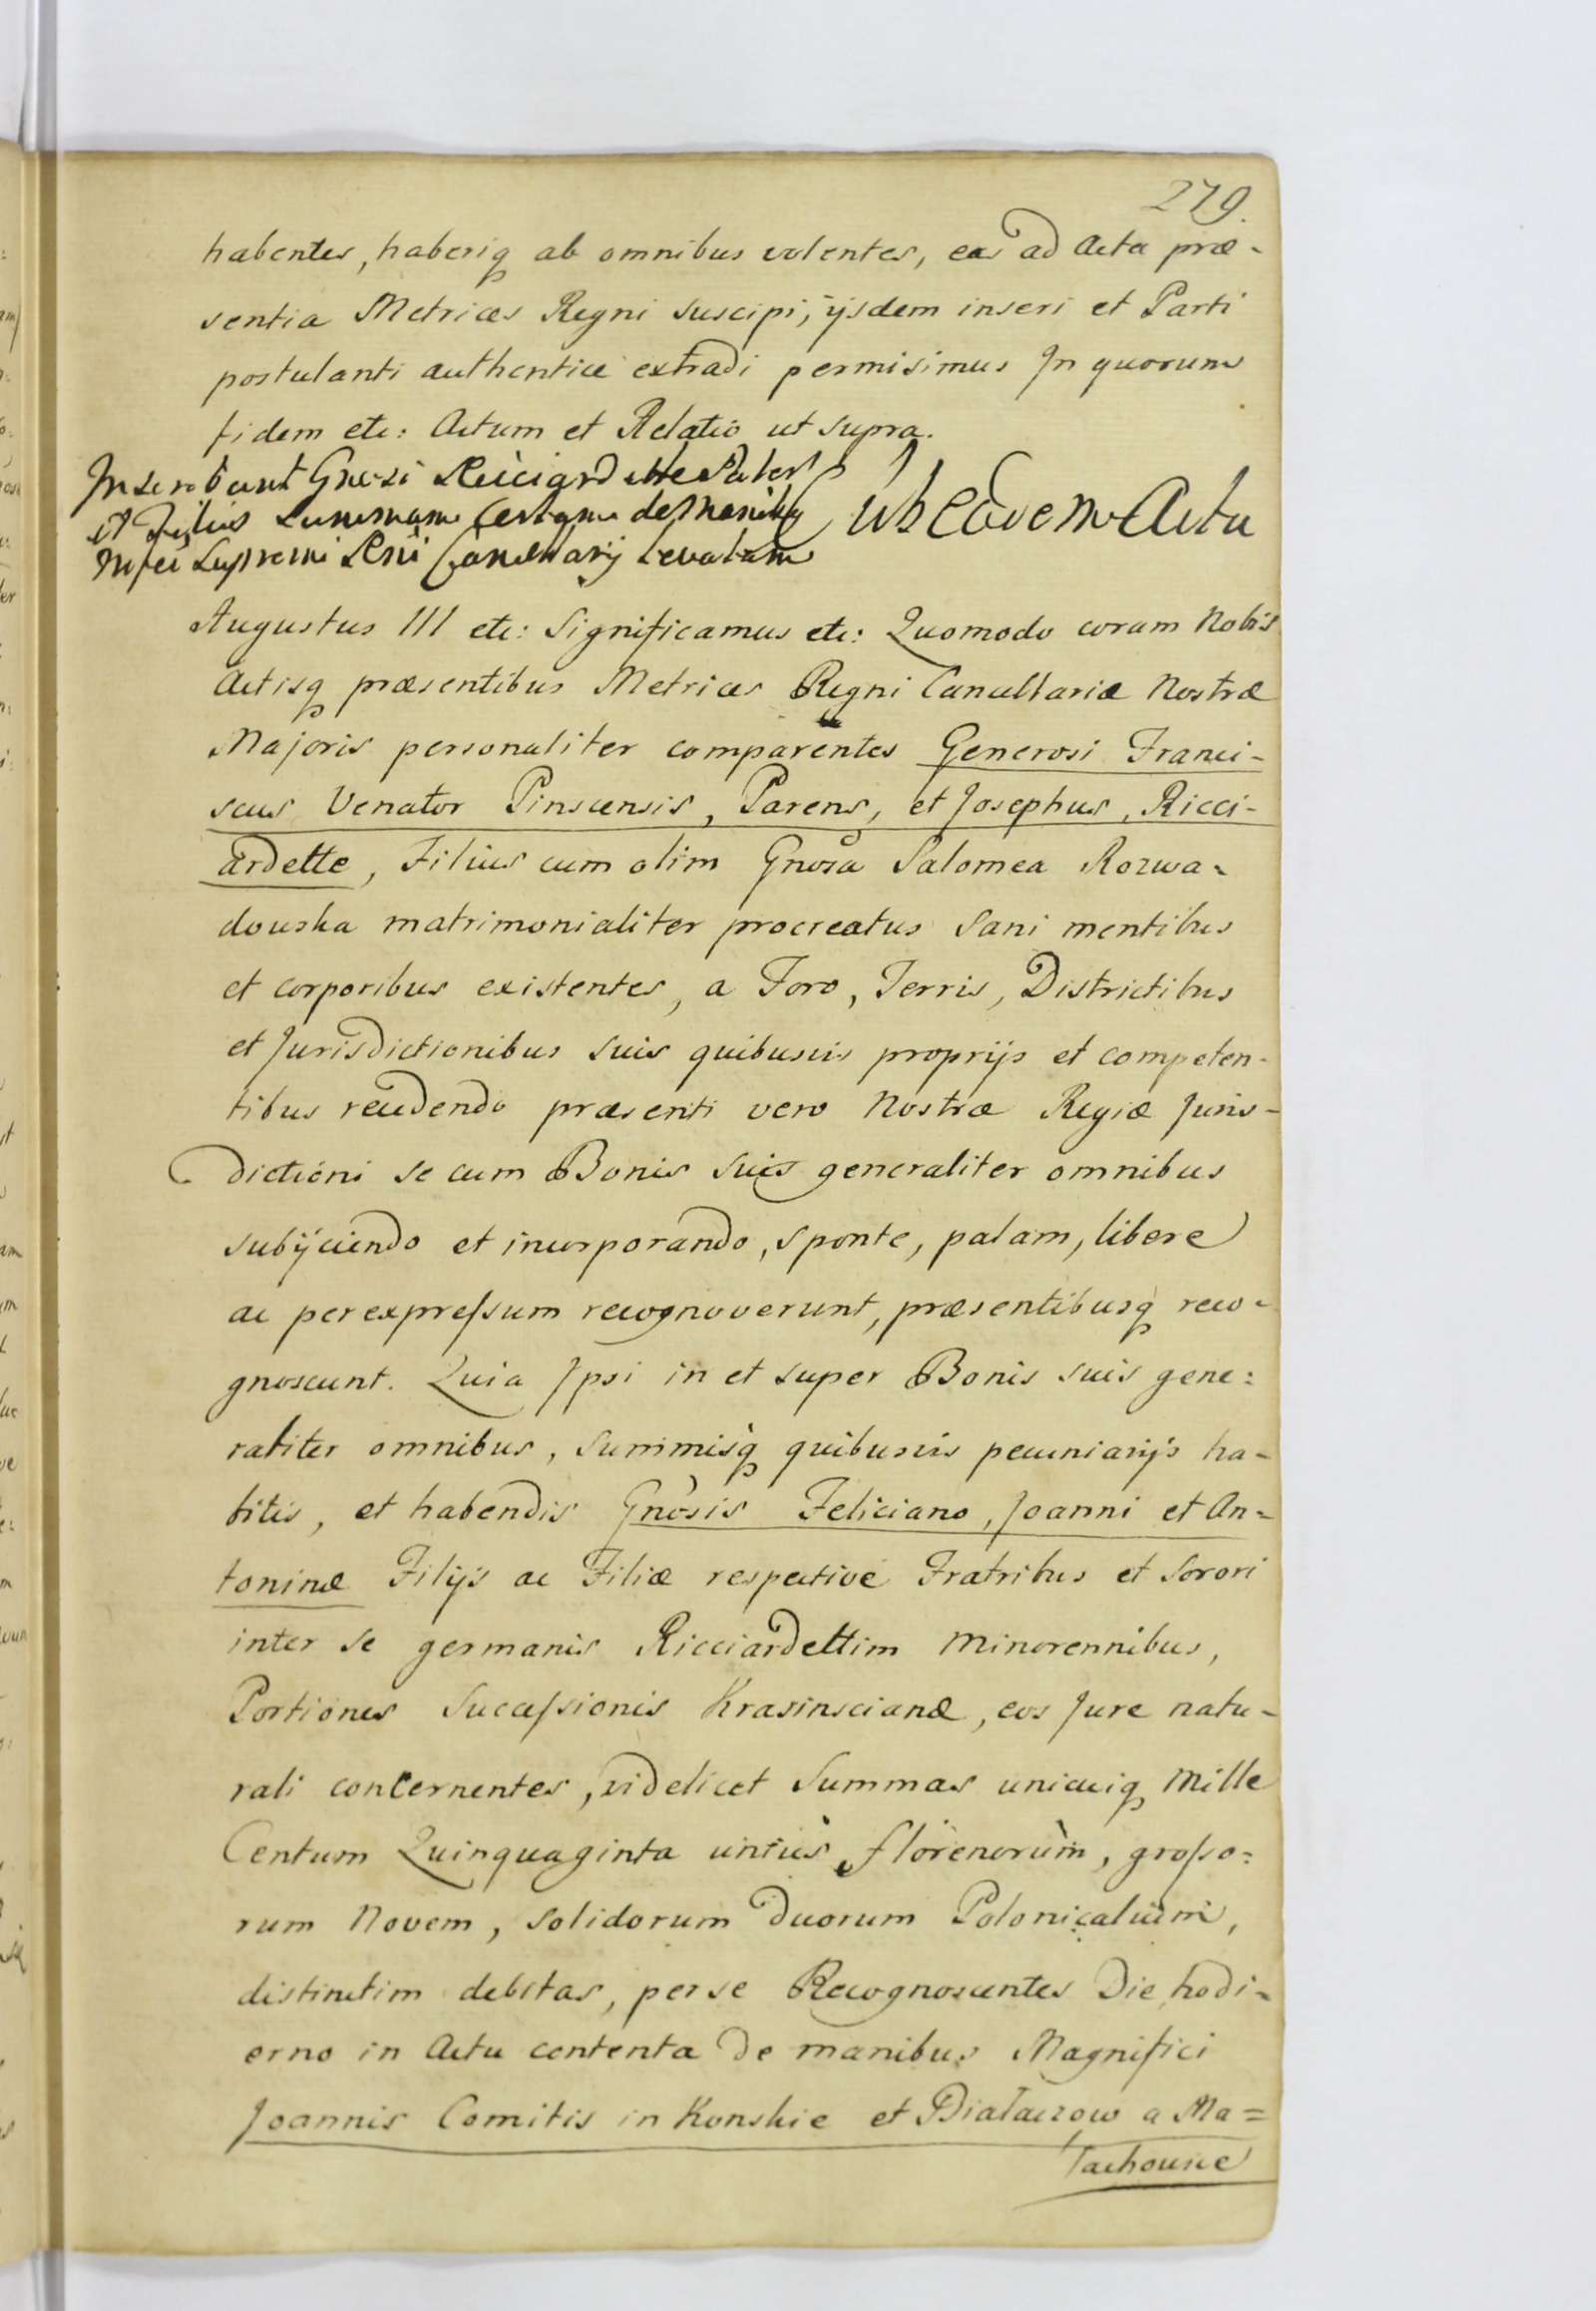 279.
habentes, haberiq ab omnibus volentes, eas ad Acta præ-
sentia Metrices Regni suscipi, ijsdem inseri et Parti
postulanti authentice extradi permisimus In quorum
fidem etc: Actum et Relatio ut supra.
Inscribunt Gnosi Ricciardette Pater
et Filius Summam certam de Manibus
Mfci Supremi Rni Cancellarij Levatam
Ut eodem Actu
Augustus III etc: Significamus etc: Quomodo coram Nobis
Actisq præsentibus Metrices Regni Cancellariæ Nostræ
Majoris personaliter comparentes Generosi Franci-
scus Venator Pinscensis, Parens, et Josephus, Ricci-
ardette, Filius cum olim Gnosa Salomea Rozwa-
dowska matrimonialiter procreatus Sani mentibus
et corporibus existentes, a Foro, Terris, Districtibus
et Jurisdictionibus suis quibusvis proprijs et competen-
tibus recedendo præsenti vero Nostræ Regiæ Juris-
dictioni se cum Bonis suis generaliter omnibus
subijciendo et incorporando, sponte, palam, libere
ac per expressum recognoverunt, præsentibusq reco-
gnoscunt. Quia Ipsi in et super Bonis suis gene:
raliter omnibus, Summisq quibusvis pecuniarijs ha-
bitis, et habendis Gnosis Feliciano, Joanni et An-
toninæ Filijs ac Filiæ respective Fratribus et Sorori
inter se germanis Ricciardettim Minorennibus,
Portiones Successionis Krasinscianæ, eos Jure natu-
rali concernentes, videlicet Summas unicuiq Mille
Centum Quinquaginta unius florenorum, grosso:
rum Novem, Solidorum Duorum Polonicalium,
distinctim debitas, per se Recognoscentes Die hodi-
erno in Actu contenta de manibus Magnifici
Joannis Comitis in Konskie et Białaczow a Ma=
łachowice